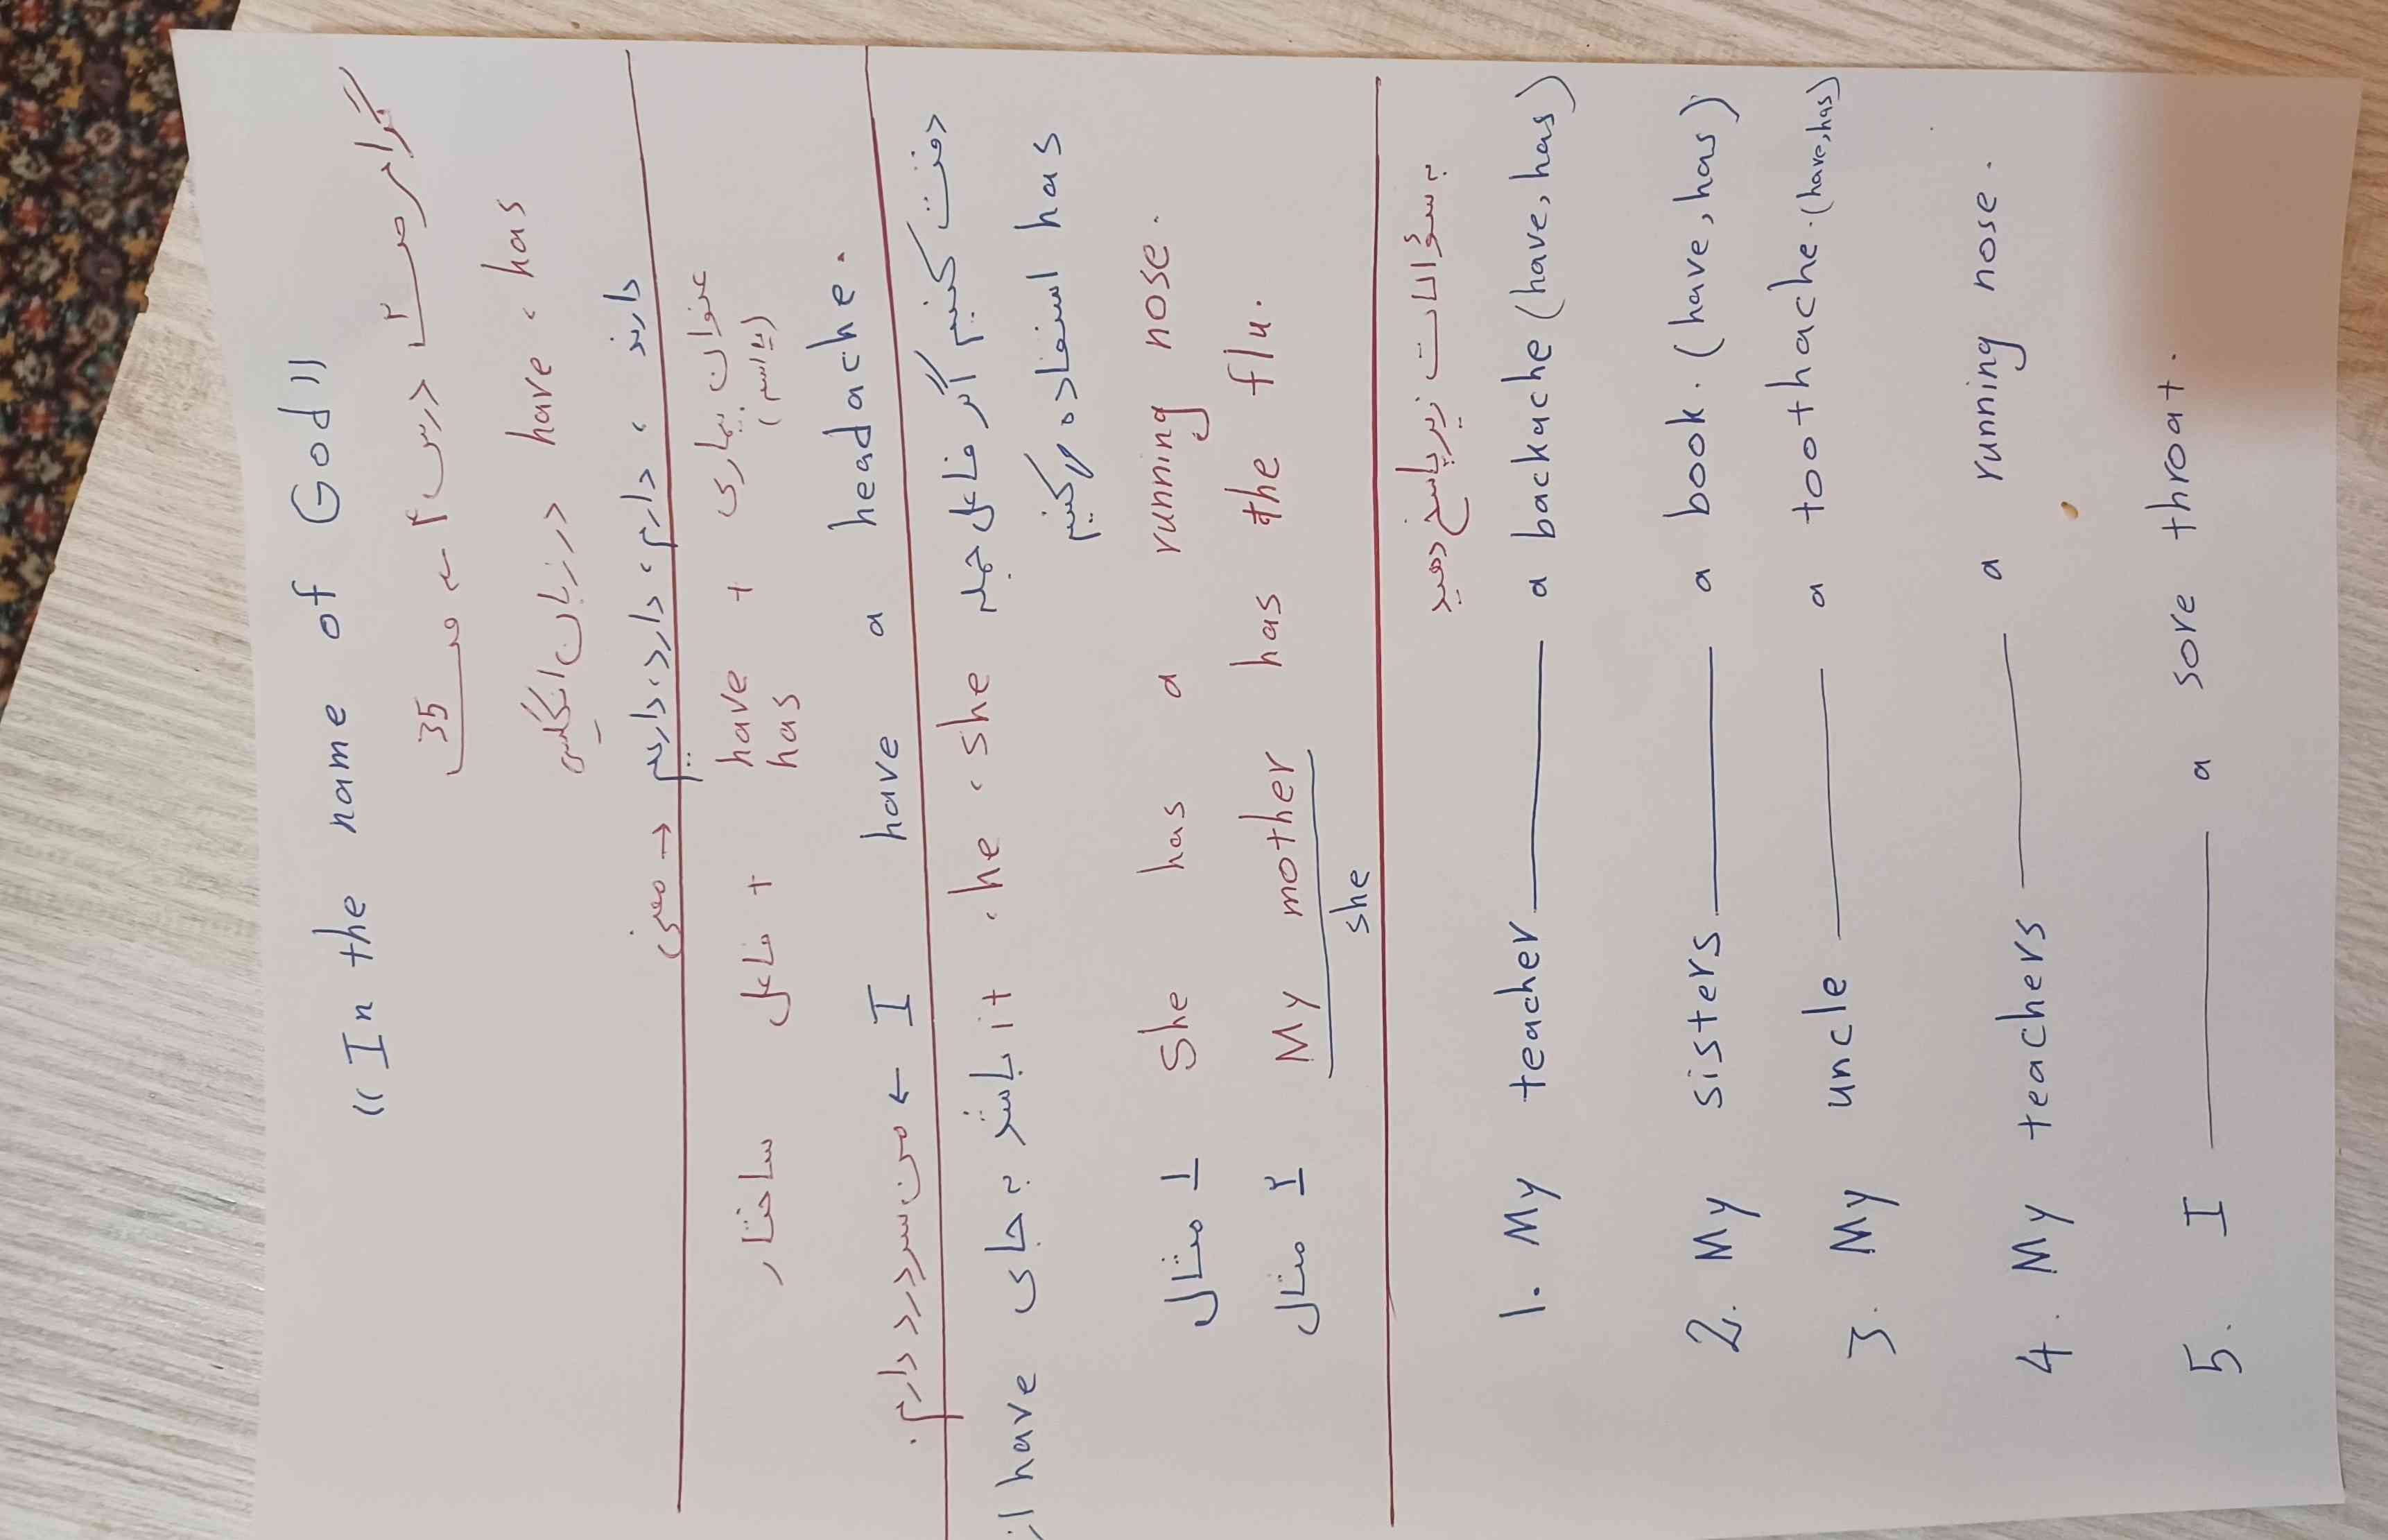 "In the name of God"
گرامر ۲ درس ۴ ← ص 35
have ، has در زبان انگلیسی
معنی → داریم ، دارد ، دارم ، دارند
ساختار فاعل + have has + عنوان بیماری (یا اسم)
من سردرد دارم. ← I have a headache.
دقت کنیم اگر فاعل جمله he ، she ، it باشد به جای
از have استفاده می‌کنیم has
مثال ۱ She has a running nose.
مثال ۲ My mother has the flu.
she
به سؤالات زیر پاسخ دهید
1. My teacher ______ a backache (have, has)
2. My sisters ______ a book. (have, has)
3. My uncle ______ a toothache. (have, has)
4. My teachers ______ a running nose.
5. I ______ a sore throat.